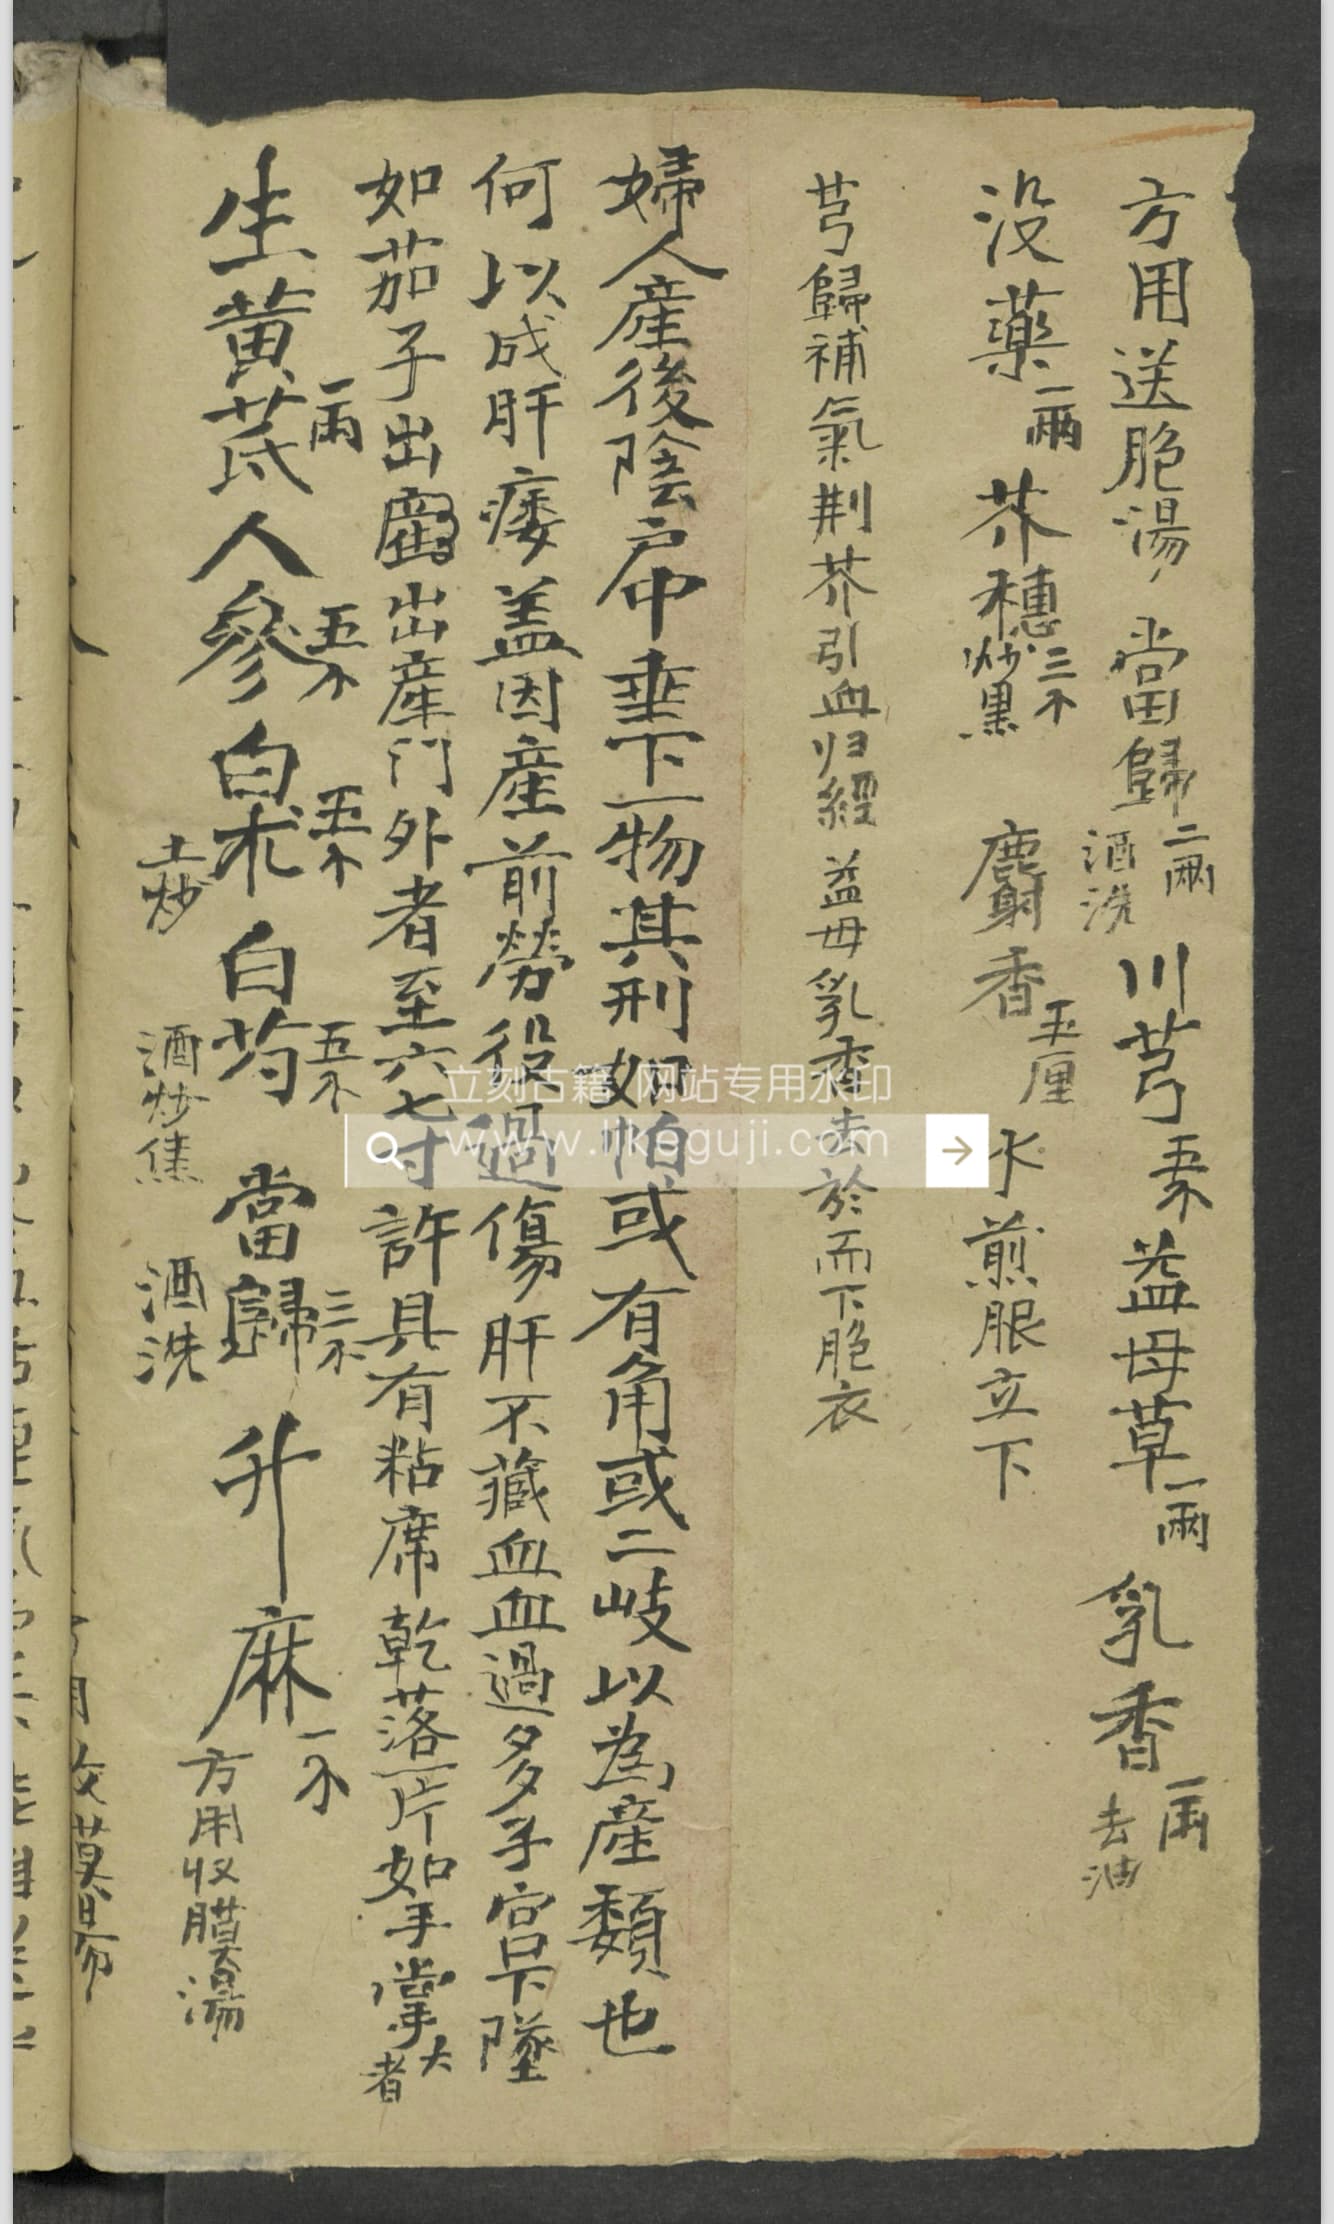 方用送胞湯 當歸二兩酒洗 川芎五不 益母草一兩 乳香一兩去油
沒藥一兩 芥穗三不炒黑 麝香五厘 水煎服立下
芎歸補氣荆芥引血归經益母乳香去於而下胞衣
婦人產後陰戶中垂下一物其刑如帕或有角或二岐以為產頹也
何以成肝痿盖因產前勞役過傷肝不藏血血過多子宫下墜
如茄子出產出產門外者至六七寸許具有粘席乾落一片如手掌大者
生黄芪一兩 人參五不 白术五不土炒 白芍五不酒炒焦 當歸三不酒洗 升麻一不 方用收膜湯
立刻古籍 网站专用水印
www.likeguji.com